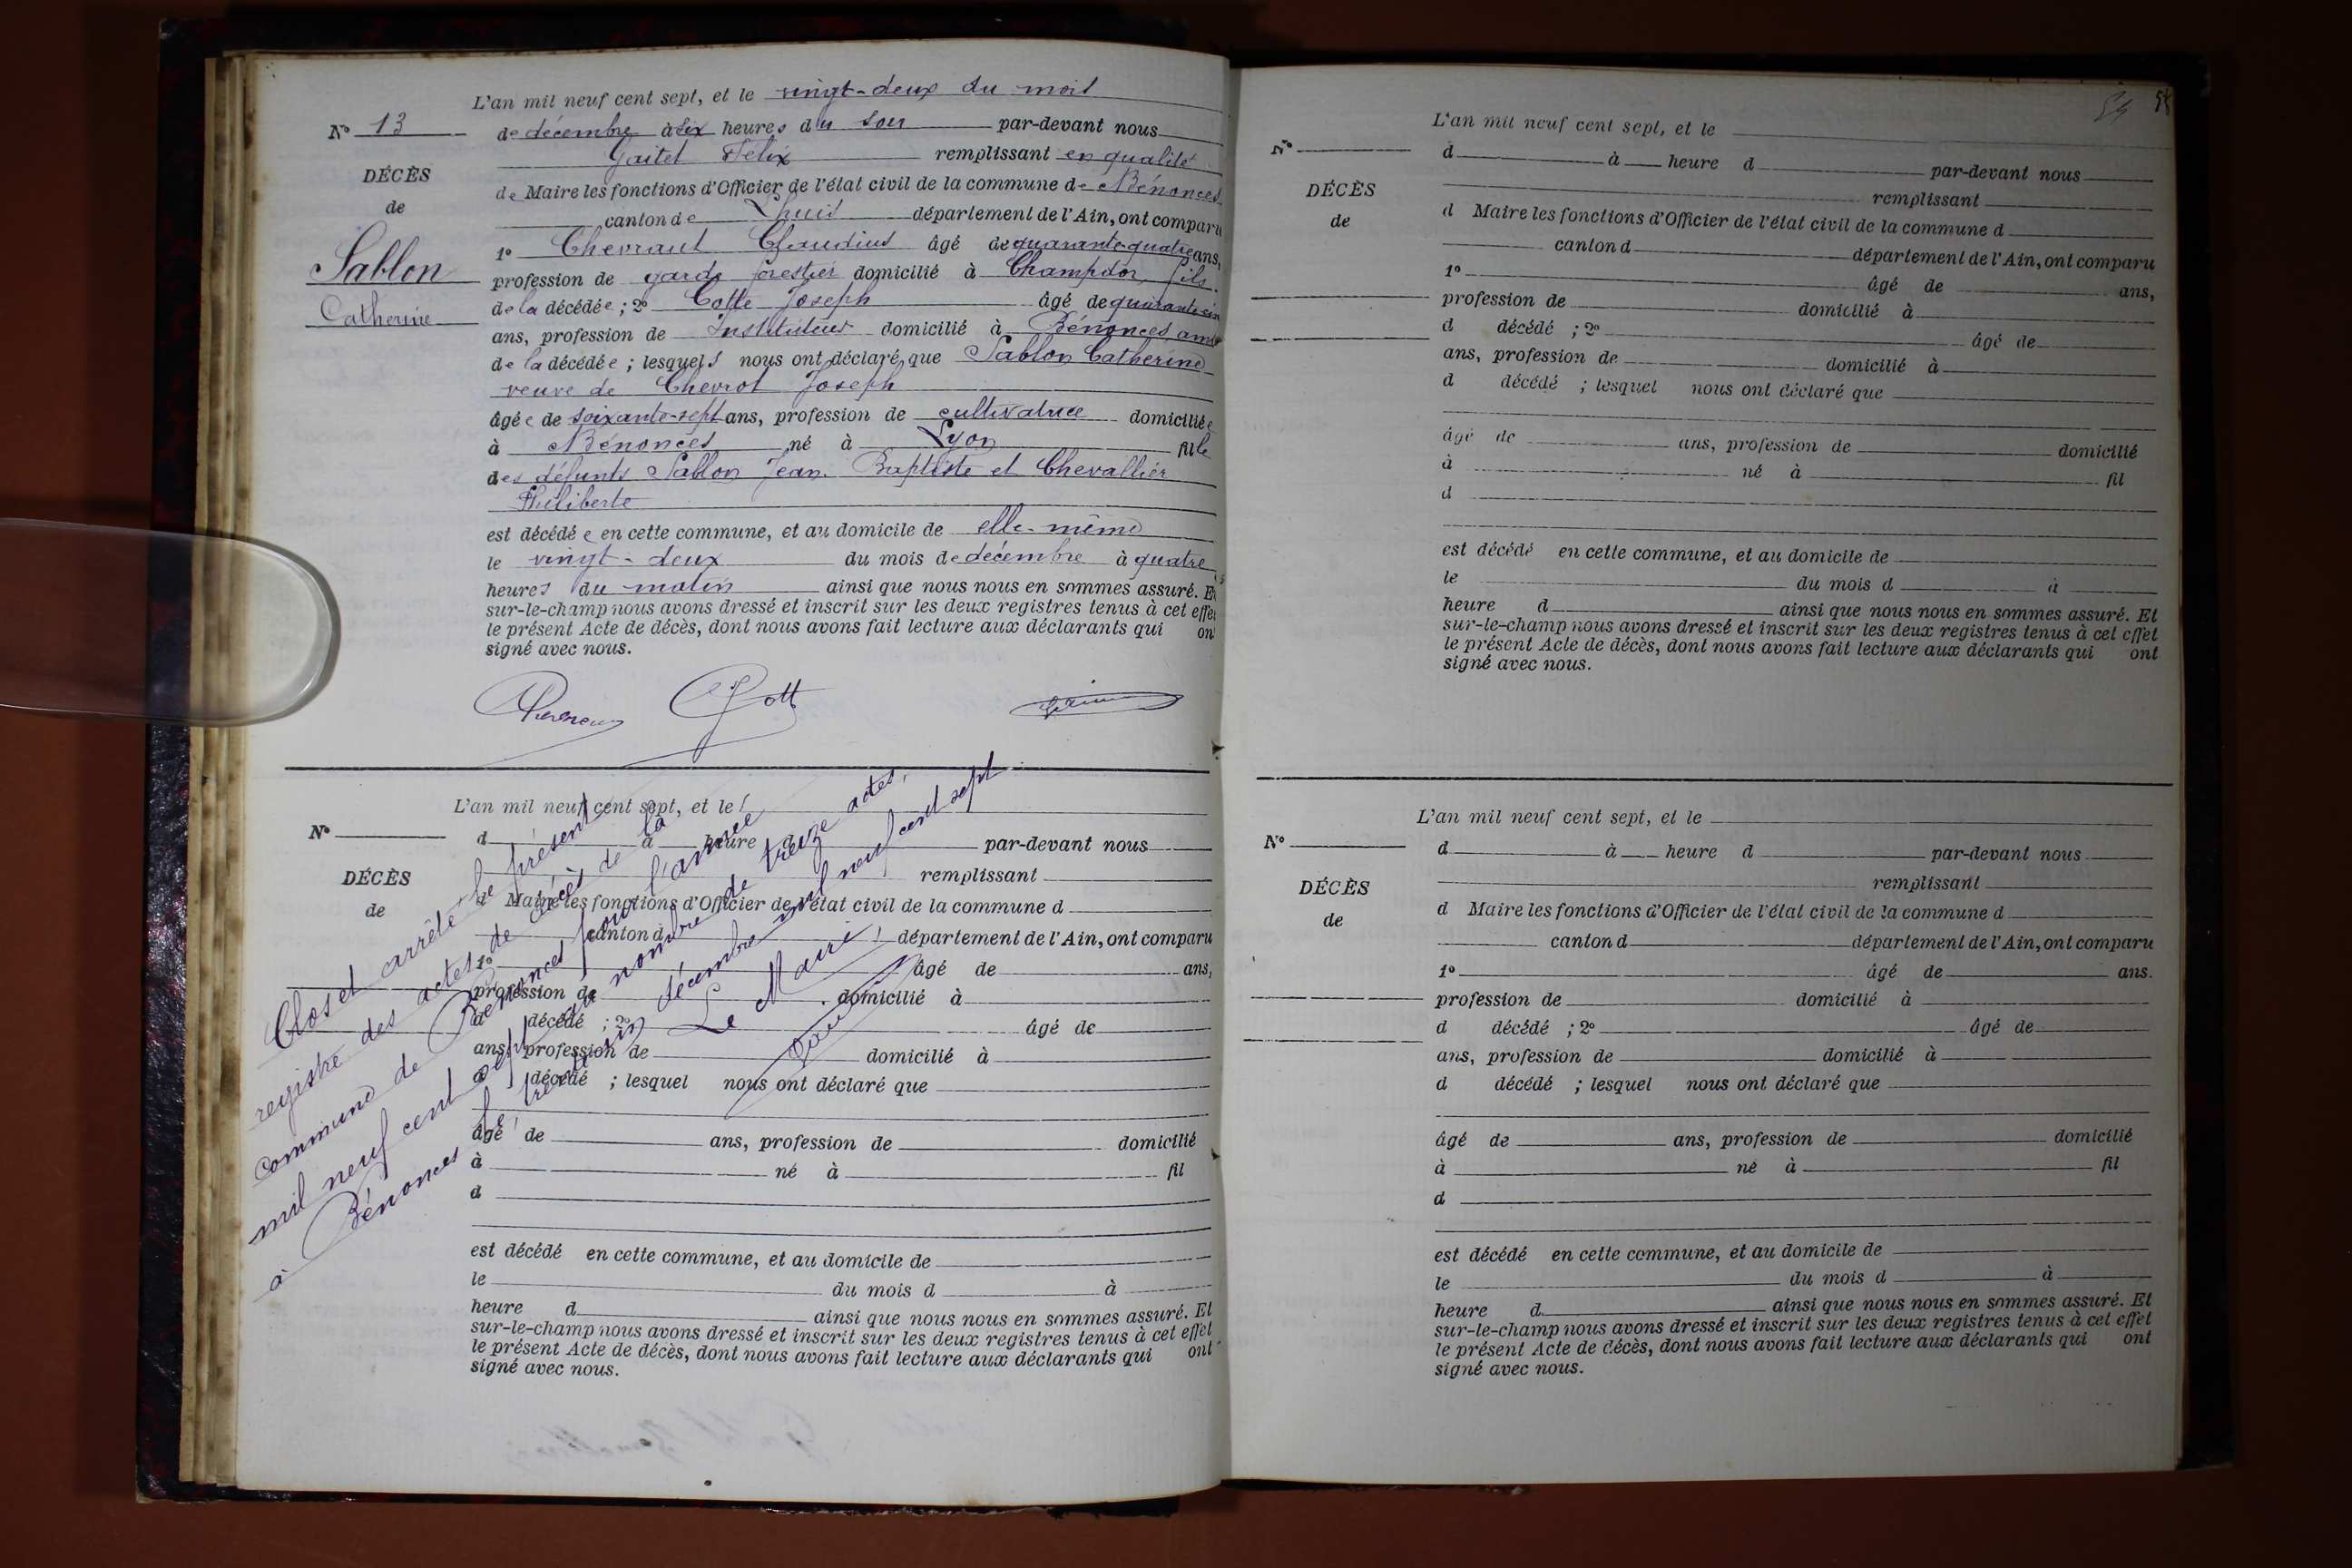 N° 13
DÉCÈS
de
Sablon
Catherine
L'an mil neuf cent sept, et le vingt-deux du mois
de décembre à six heures du soir par-devant nous
Félix remplissant en qualité
de Maire les fonctions d'Officier de l'état civil de la commune de Bénonces
canton de Lhuis département de l'Ain, ont comparu
1° Claudius âgé de quarante-quatre ans,
profession de garde forestier domicilié à Champdor, fils
de la décédée ; 2° Cotte Joseph âgé de quarante-six
ans, profession de Instituteur domicilié à Bénonces, ami
de la décédée ; lesquels nous ont déclaré que Sablon Catherine
veuve de Chevrot Joseph
âgée de soixante-sept ans, profession de cultivatrice domiciliée
à Bénonces né à Lyon fille
des défunts Sablon Jean Baptiste et Chevallier
Philiberte
est décédée en cette commune, et au domicile de elle-même
le vingt-deux du mois de décembre à quatre
heures du matin ainsi que nous nous en sommes assuré. Et
sur-le-champ nous avons dressé et inscrit sur les deux registres tenus à cet effet
le présent Acte de décès, dont nous avons fait lecture aux déclarants qui ont
signé avec nous.
N°
DÉCÈS
de
L'an mil neuf cent sept, et le
d à heure d par-devant nous
remplissant
d Maire les fonctions d'Officier de l'état civil de la commune d
canton d département de l'Ain, ont comparu
1° âgé de ans,
profession de domicilié à
d décédé ; 2° âgé de
ans, profession de domicilié à
d décédé ; lesquel nous ont déclaré que
âgé de ans, profession de domicilié
à né à fil
d
est décédé en cette commune, et au domicile de
le du mois d à
heure d ainsi que nous nous en sommes assuré. Et
sur-le-champ nous avons dressé et inscrit sur les deux registres tenus à cet effet
le présent Acte de décès, dont nous avons fait lecture aux déclarants qui ont
signé avec nous.
Clos et arrêté le présent
registre des actes de décès de la
commune de Bénonces pour l'année
mil neuf cent sept au nombre de treize actes,
à Bénonces le trente un décembre mil neuf cent sept
Le Maire,
N°
DÉCÈS
de
L'an mil neuf cent sept, et le
d à heure d par-devant nous
remplissant
d Maire les fonctions d'Officier de l'état civil de la commune d
canton d département de l'Ain, ont comparu
1° âgé de ans,
profession de domicilié à
d décédé ; 2° âgé de
ans, profession de domicilié à
d décédé ; lesquel nous ont déclaré que
âgé de ans, profession de domicilié
à né à fil
d
est décédé en cette commune, et au domicile de
le du mois d à
heure d ainsi que nous nous en sommes assuré. Et
sur-le-champ nous avons dressé et inscrit sur les deux registres tenus à cet effet
le présent Acte de décès, dont nous avons fait lecture aux déclarants qui ont
signé avec nous.
N°
DÉCÈS
de
L'an mil neuf cent sept, et le
d à heure d par-devant nous
remplissant
d Maire les fonctions d'Officier de l'état civil de la commune d
canton d département de l'Ain, ont comparu
1° âgé de ans.
profession de domicilié à
d décédé ; 2° âgé de
ans, profession de domicilié à
d décédé ; lesquel nous ont déclaré que
âgé de ans, profession de domicilié
à né à fil
d
est décédé en cette commune, et au domicile de
le du mois d à
heure d ainsi que nous nous en sommes assuré. Et
sur-le-champ nous avons dressé et inscrit sur les deux registres tenus à cet effet
le présent Acte de décès, dont nous avons fait lecture aux déclarants qui ont
signé avec nous.